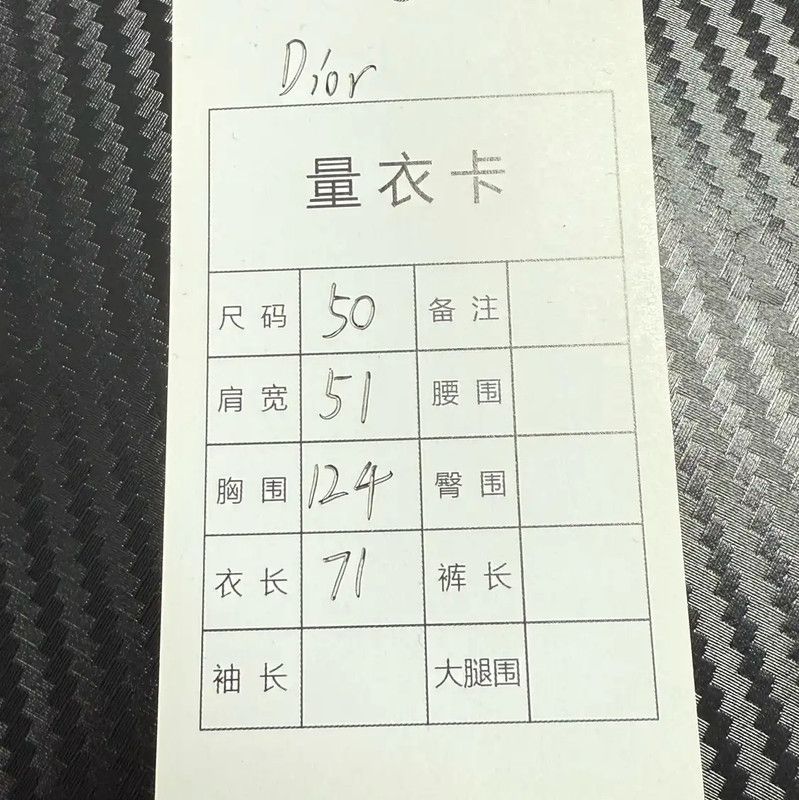 Dior
量衣卡
尺码 50 备注
肩宽 51 腰围
胸围 124 臀围
衣长 71 裤长
袖长 大腿围